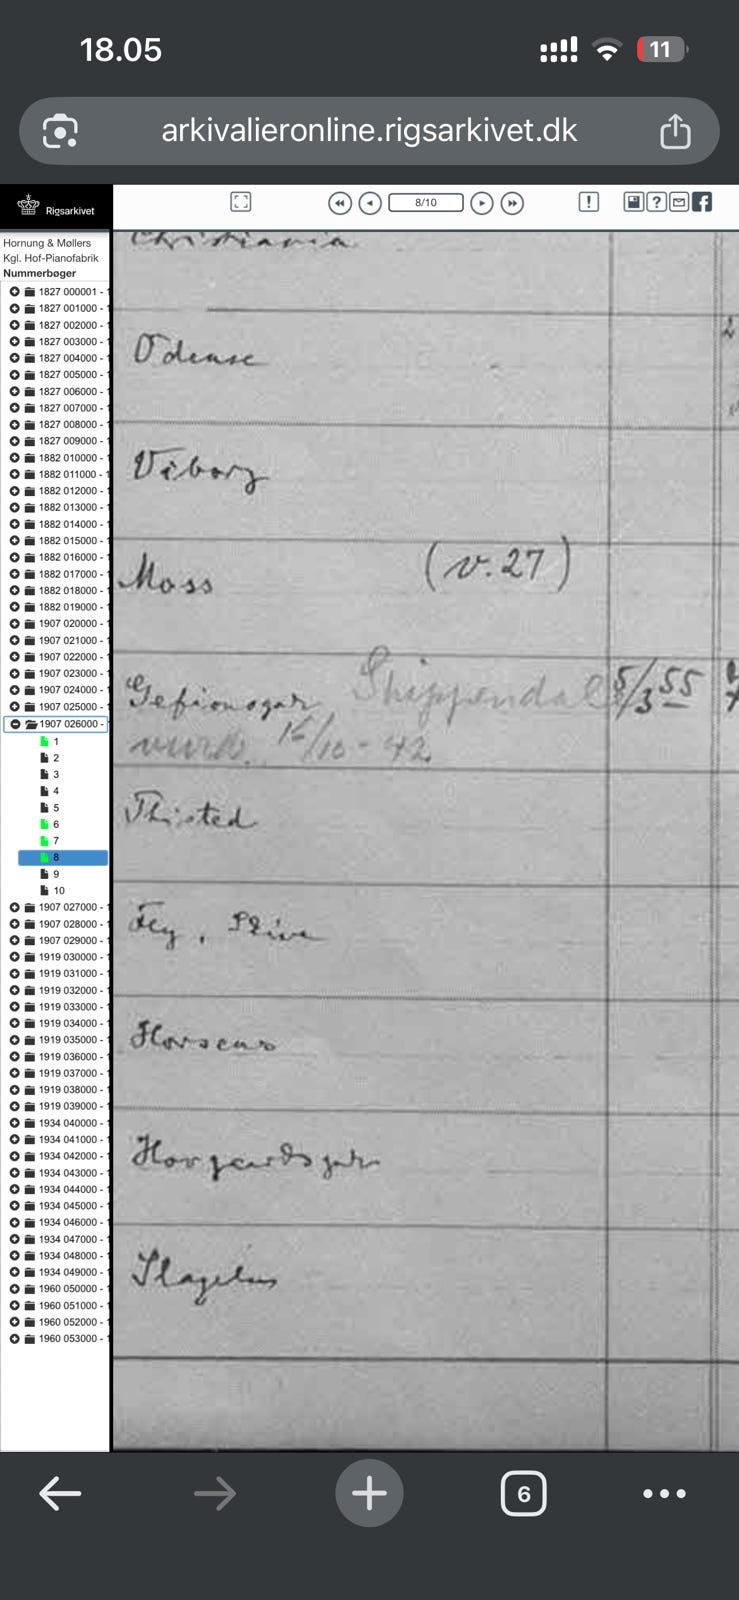 18.05
11
arkivalieronline.rigsarkivet.dk
Rigsarkivet
8/10
!
?
Hornung & Møllers
Kgl. Hof-Pianofabrik
Nummerbøger
1827 000001 - 1
1827 001000 - 1
1827 002000 - 1
1827 003000 - 1
1827 004000 - 1
1827 005000 - 1
1827 006000 - 1
1827 007000 - 1
1827 008000 - 1
1827 009000 - 1
1882 010000 - 1
1882 011000 - 1
1882 012000 - 1
1882 013000 - 1
1882 014000 - 1
1882 015000 - 1
1882 016000 - 1
1882 017000 - 1
1882 018000 - 1
1882 019000 - 1
1907 020000 - 1
1907 021000 - 1
1907 022000 - 1
1907 023000 - 1
1907 024000 - 1
1907 025000 - 1
1907 026000 - 1
1
2
3
4
5
6
7
8
9
10
1907 027000 - 1
1907 028000 - 1
1907 029000 - 1
1919 030000 - 1
1919 031000 - 1
1919 032000 - 1
1919 033000 - 1
1919 034000 - 1
1919 035000 - 1
1919 036000 - 1
1919 037000 - 1
1919 038000 - 1
1919 039000 - 1
1934 040000 - 1
1934 041000 - 1
1934 042000 - 1
1934 043000 - 1
1934 044000 - 1
1934 045000 - 1
1934 046000 - 1
1934 047000 - 1
1934 048000 - 1
1934 049000 - 1
1960 050000 - 1
1960 051000 - 1
1960 052000 - 1
1960 053000 - 1
Christiania
Odense
Viborg
Moss (v.27)
Gefionsgar 5/3 55
16/10 - 42
Thisted
Fly, Skive
Horsens
Slagelse
6